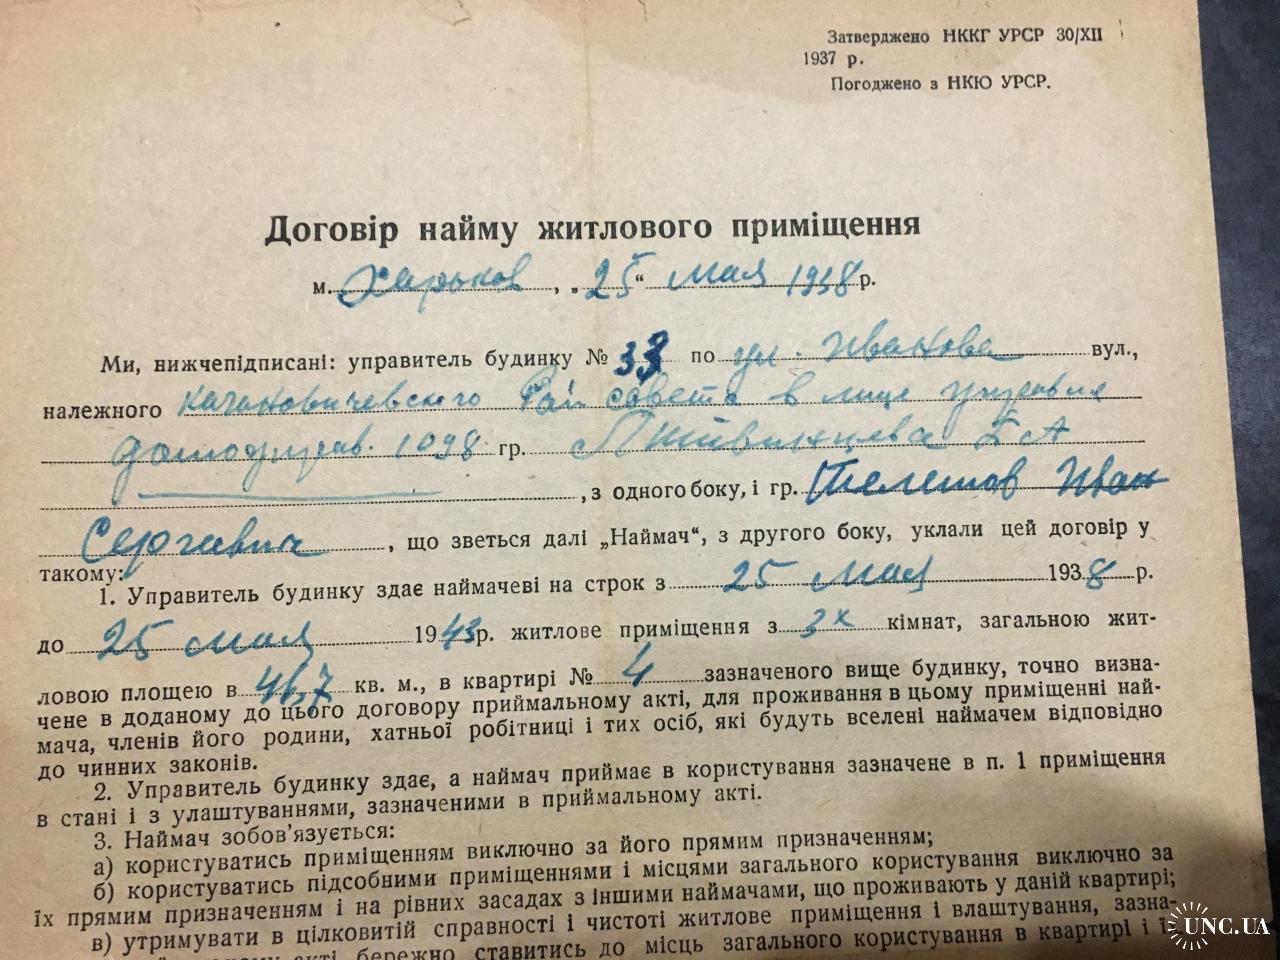 Затверджено НККГ УРСР 30/XII
1937 р.
Погоджено з НКЮ УРСР.
Договір найму житлового приміщення
м. Харьков, „25“ мая 1938 р.
Ми, нижчепідписані: управитель будинку № 33 по ул. Иванова вул.,
належного Кагановичевского Рай совета в лице управля
домоуправ. 1098 гр. А
, з одного боку, і гр. Телешов Иван
Сергеевич, що зветься далі „Наймач“, з другого боку, уклали цей договір у
такому:
1. Управитель будинку здає наймачеві на строк з 25 мая 1938 р.
до 25 мая 1943 р. житлове приміщення з 3х кімнат, загальною жит-
ловою площею в 41,7 кв. м., в квартирі № 4 зазначеного вище будинку, точно визна-
чене в доданому до цього договору приймальному акті, для проживання в цьому приміщенні най-
мача, членів його родини, хатньої робітниці і тих осіб, які будуть вселені наймачем відповідно
до чинних законів.
2. Управитель будинку здає, а наймач приймає в користування зазначене в п. 1 приміщення
в стані і з улаштуваннями, зазначеними в приймальному акті.
3. Наймач зобов'язується:
а) користуватись приміщенням виключно за його прямим призначенням;
б) користуватись підсобними приміщеннями і місцями загального користування виключно за
їх прямим призначенням і на рівних засадах з іншими наймачами, що проживають у даній квартирі;
в) утримувати в цілковитій справності і чистоті житлове приміщення і влаштування, зазна-
акті, бережно ставитись до місць загального користування в квартирі і і
UNC.UA